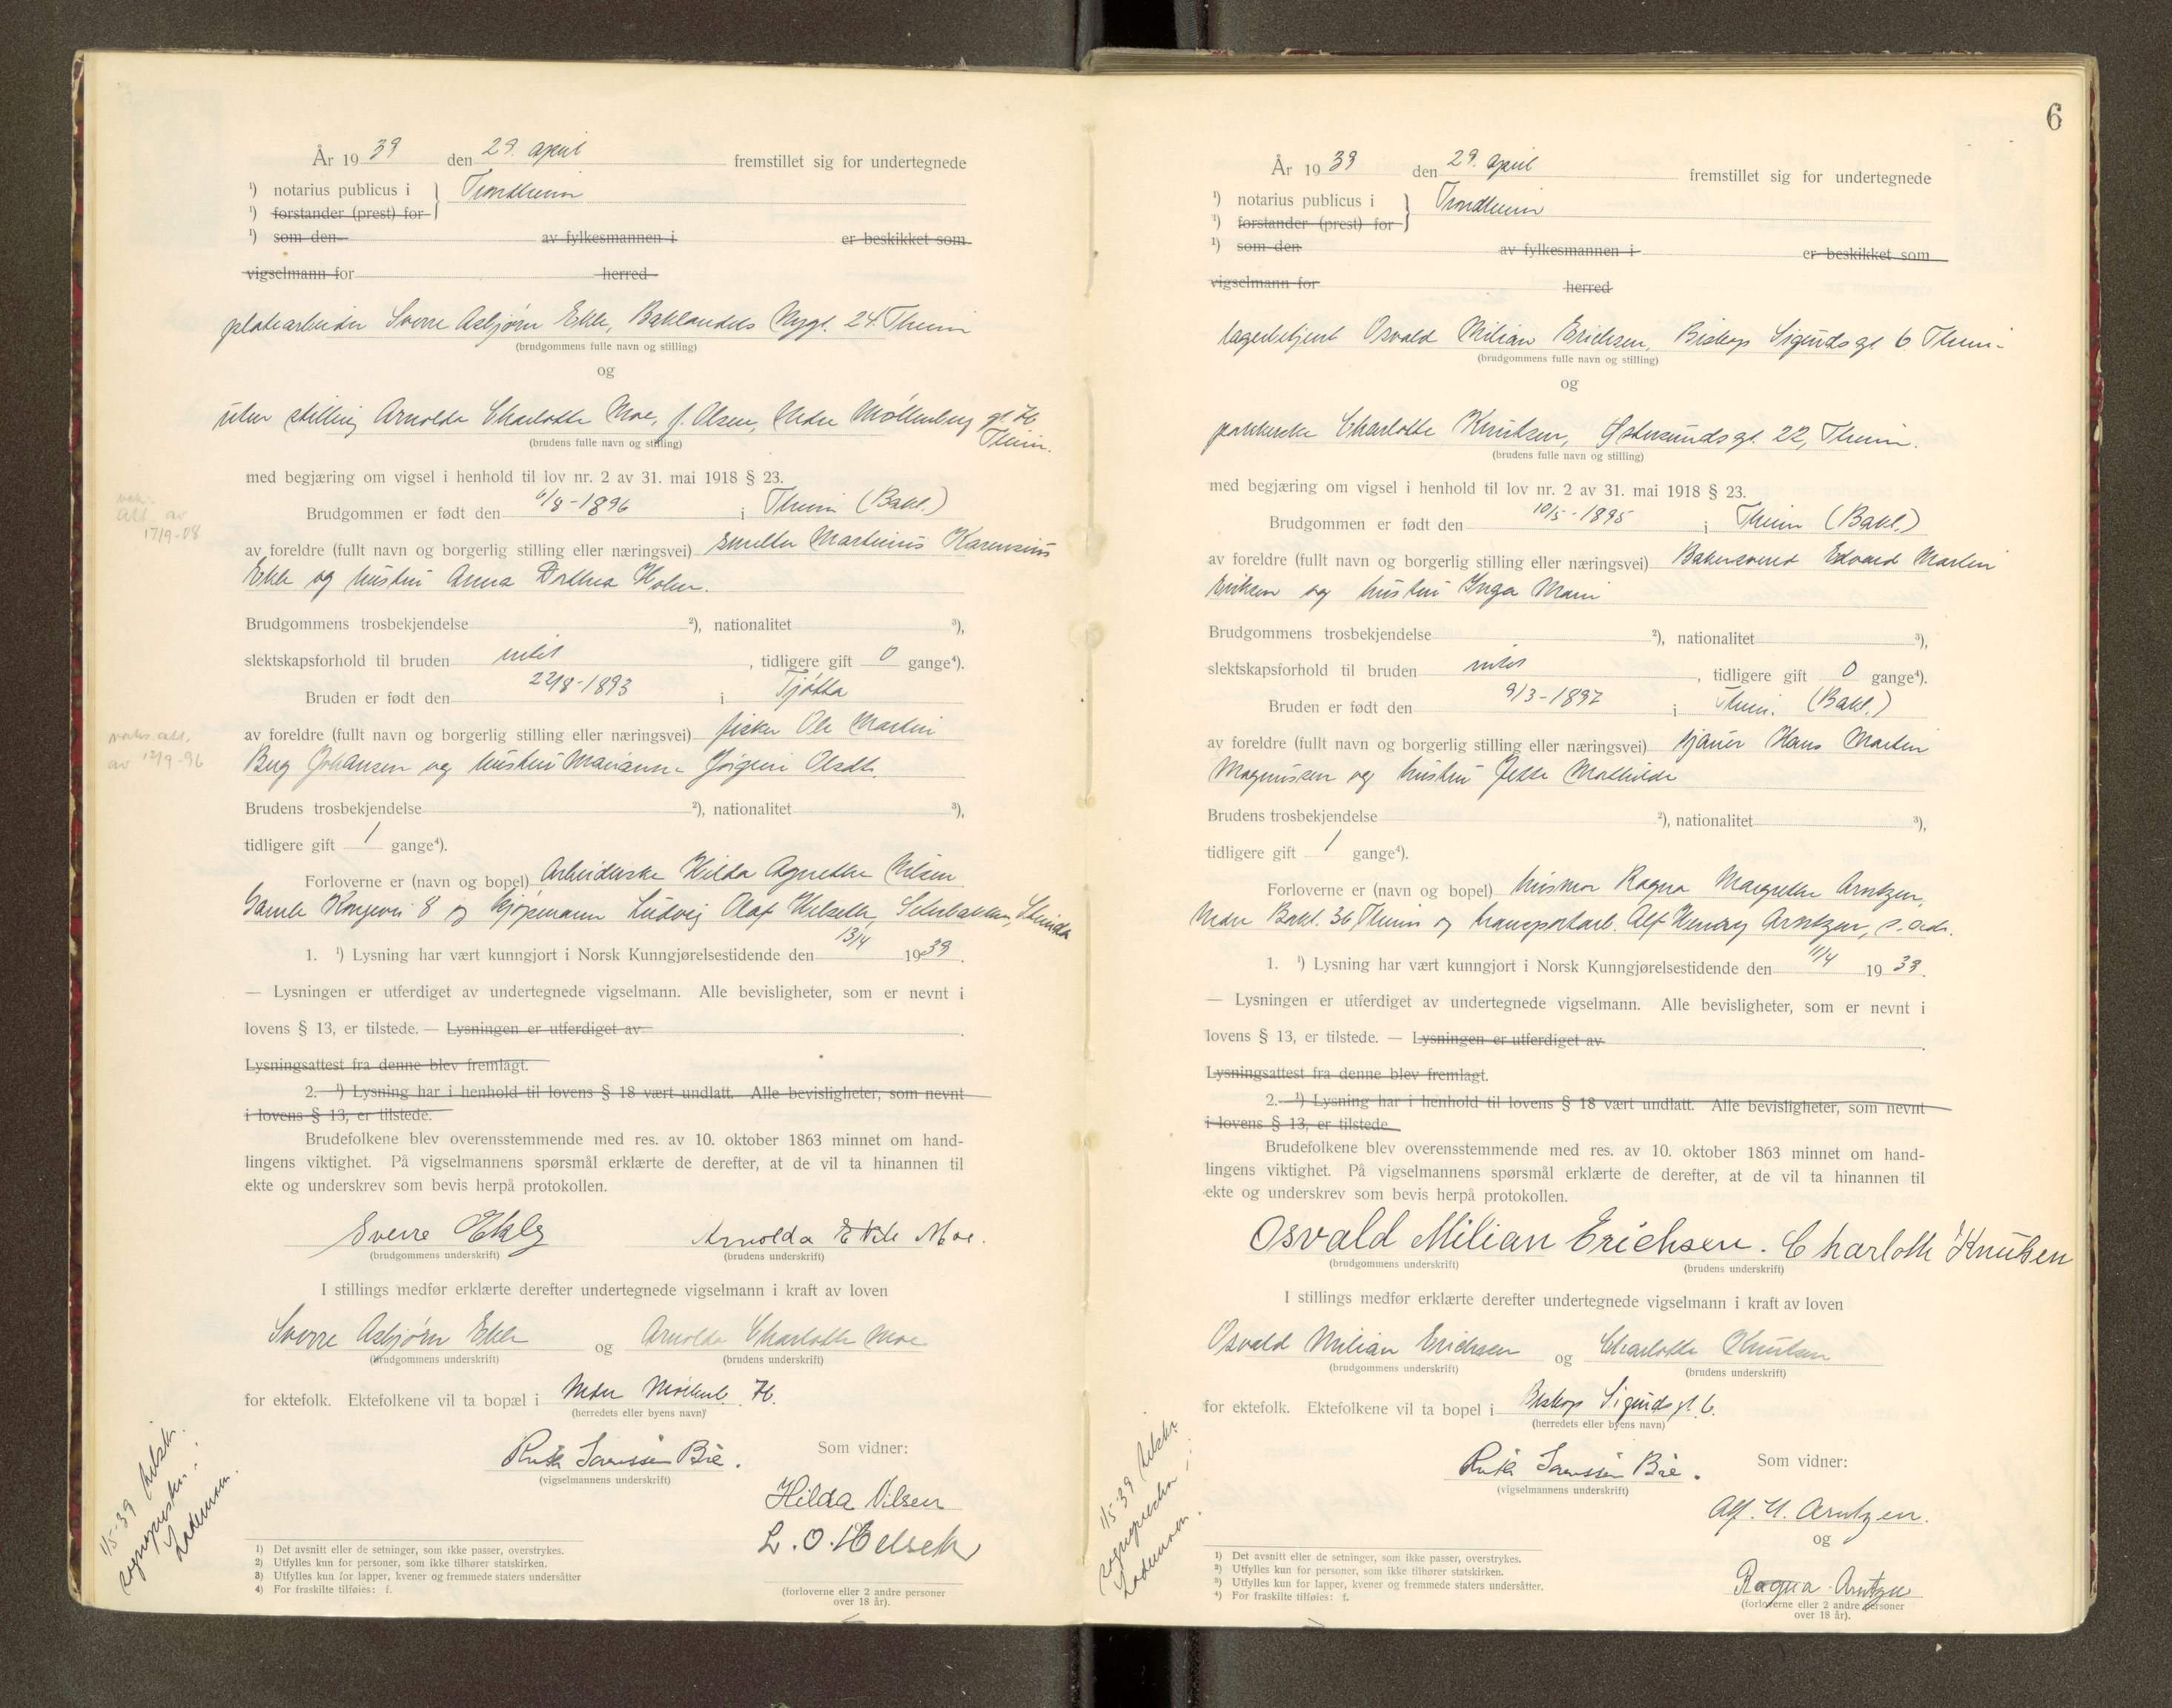 År 19 39 den 29. april fremstillet sig for undertegnede
¹) notarius publicus i } Trondheim
¹) forstander (prest) for
¹) som den av fylkesmannen i er beskikket som
vigselmann for herred
platearbeider Sverre Asbjørn Ekle, Baklandets Nygt. 24. Theim
(brudgommens fulle navn og stilling)
og
uten stilling Arnolda Charlotte Moe, f. Olsen, Nedre Møllenberg gt. 
Theim.
(brudens fulle navn og stilling)
med begjæring om vigsel i henhold til lov nr. 2 av 31. mai 1918 § 23.
Brudgommen er født den 6/8-1896 i Theim (Bakl.)
av foreldre (fullt navn og borgerlig stilling eller næringsvei) smelter Martinius
Ekle og hustru Anna Dorthea Holm.
Brudgommens trosbekjendelse ²), nationalitet ³),
slektskapsforhold til bruden intet, tidligere gift 0 gange⁴).
Bruden er født den 22/8-1893 i Tjøtta
av foreldre (fullt navn og borgerlig stilling eller næringsvei) fisker Ole Martin
Berg Johansen og hustru Marianne Jørgine Olsdtr.
Brudens trosbekjendelse ²), nationalitet ³),
tidligere gift 1 gange⁴).
Forloverne er (navn og bopel) Arbeiderske Hilda Agnethe Nilsen
Gamle Kongevei 8 og kjøpmann Ludvig Olaf Helseth, Strinda
1. ¹) Lysning har vært kunngjort i Norsk Kunngjørelsestidende den 13/4 1939.
— Lysningen er utferdiget av undertegnede vigselmann. Alle bevisligheter, som er nevnt i
lovens § 13, er tilstede. — Lysningen er utferdiget av
Lysningsattest fra denne blev fremlagt.
2. ¹) Lysning har i henhold til lovens § 18 vært undlatt. Alle bevisligheter, som nevnt
i lovens § 13, er tilstede.
Brudefolkene blev overensstemmende med res. av 10. oktober 1863 minnet om hand-
lingens viktighet. På vigselmannens spørsmål erklærte de derefter, at de vil ta hinannen til
ekte og underskrev som bevis herpå protokollen.
Sverre Ekle Arnolda Moe.
(brudgommens underskrift) (brudens underskrift)
I stillings medfør erklærte derefter undertegnede vigselmann i kraft av loven
Sverre Asbjørn Ekle og Arnolda Charlotte Moe
(brudgommens underskrift) (brudens underskrift)
for ektefolk. Ektefolkene vil ta bopæl i Nedre Møllenb.
(herredets eller byens navn)
Som vidner:
(vigselmannens underskrift)
Hilda Nilsen
L. O. Helseth
(forloverne eller 2 andre personer
over 18 år).
¹) Det avsnitt eller de setninger, som ikke passer, overstrykes.
2) Utfylles kun for personer, som ikke tilhører statskirken.
3) Utfylles kun for lapper, kvener og fremmede staters undersåtter
4) For fraskilte tilføies: f.
att. av
17/9-08
av 12/9-96
1/5-39
sognepresten i
Lademoen.
6
År 19 39 den 29. april fremstillet sig for undertegnede
¹) notarius publicus i } Trondheim
¹) forstander (prest) for
¹) som den av fylkesmannen i er beskikket som
vigselmann for herred
lagerbetjent Osvald Milian Erichsen, Biskop Sigurds gt. 6 Theim
(brudgommens fulle navn og stilling)
og
pakkerske Charlotte Knutsen, Østersunds gt. 22, Theim.
(brudens fulle navn og stilling)
med begjæring om vigsel i henhold til lov nr. 2 av 31. mai 1918 § 23.
Brudgommen er født den 10/5-1895 i Theim (Bakl.)
av foreldre (fullt navn og borgerlig stilling eller næringsvei) Bakersvend Edvard Martin
Eriksen og hustru Inga Marie
Brudgommens trosbekjendelse ²), nationalitet ³),
slektskapsforhold til bruden intet, tidligere gift 0 gange⁴).
Bruden er født den 9/3-1897 i Theim. (Bakl.)
av foreldre (fullt navn og borgerlig stilling eller næringsvei) Hans Martin
Magnussen og hustru Jette Mathilde
Brudens trosbekjendelse ²), nationalitet ³),
tidligere gift 1 gange⁴).
Forloverne er (navn og bopel) husmor Ragna Margrethe Arntzen,
Nedre Bakl. 36 Theim og transportarb. Alf Henry Arntzen, s. adr.
1. ¹) Lysning har vært kunngjort i Norsk Kunngjørelsestidende den 11/4 1939.
— Lysningen er utferdiget av undertegnede vigselmann. Alle bevisligheter, som er nevnt i
lovens § 13, er tilstede. — Lysningen er utferdiget av
Lysningsattest fra denne blev fremlagt.
2. ¹) Lysning har i henhold til lovens § 18 vært undlatt. Alle bevisligheter, som nevnt
i lovens § 13, er tilstede
Brudefolkene blev overensstemmende med res. av 10. oktober 1863 minnet om hand-
lingens viktighet. På vigselmannens spørsmål erklærte de derefter, at de vil ta hinannen til
ekte og underskrev som bevis herpå protokollen.
Osvald Milian Erichsen. Charlotte Knutsen
(brudgommens underskrift) (brudens underskrift)
I stillings medfør erklærte derefter undertegnede vigselmann i kraft av loven
Osvald Milian Erichsen og Charlotte Knutsen
(brudgommens underskrift) (brudens underskrift)
for ektefolk. Ektefolkene vil ta bopel i Biskop Sigurds gt. 6.
(herredets eller byens navn)
Som vidner:
(vigselmannens underskrift)
Alf. H. Arntzen.
og
Ragna Arntzen
(forloverne eller 2 andre personer
over 18 år).
¹) Det avsnitt eller de setninger, som ikke passer, overstrykes.
²) Utfylles kun for personer, som ikke tilhører statskirken.
³) Utfylles kun for lapper, kvener og fremmede staters undersåtter.
⁴) For fraskilte tilføies: f.
1/5-39
sognepresten i
Lademoen.